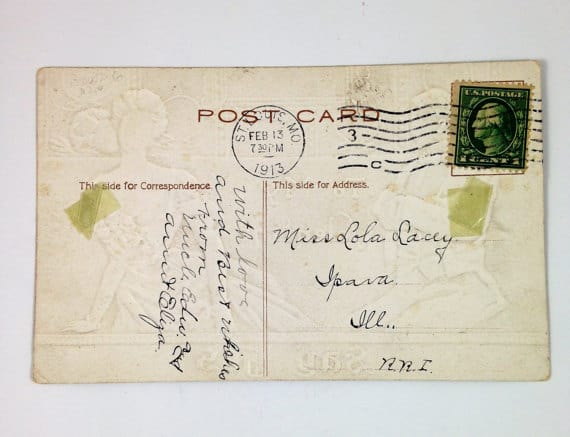 POST CARD
ST. LOUIS, MO.
FEB 13
7 30 PM
1913
3
C
U.S. POSTAGE
1 CENT 1
This side for Correspondence.
This side for Address.
With love
and Best Wishes
from
Uncle Edw. and
aunt Eliza.
Miss Lola Lacey
Ipava.
Ill..
R.R.I.